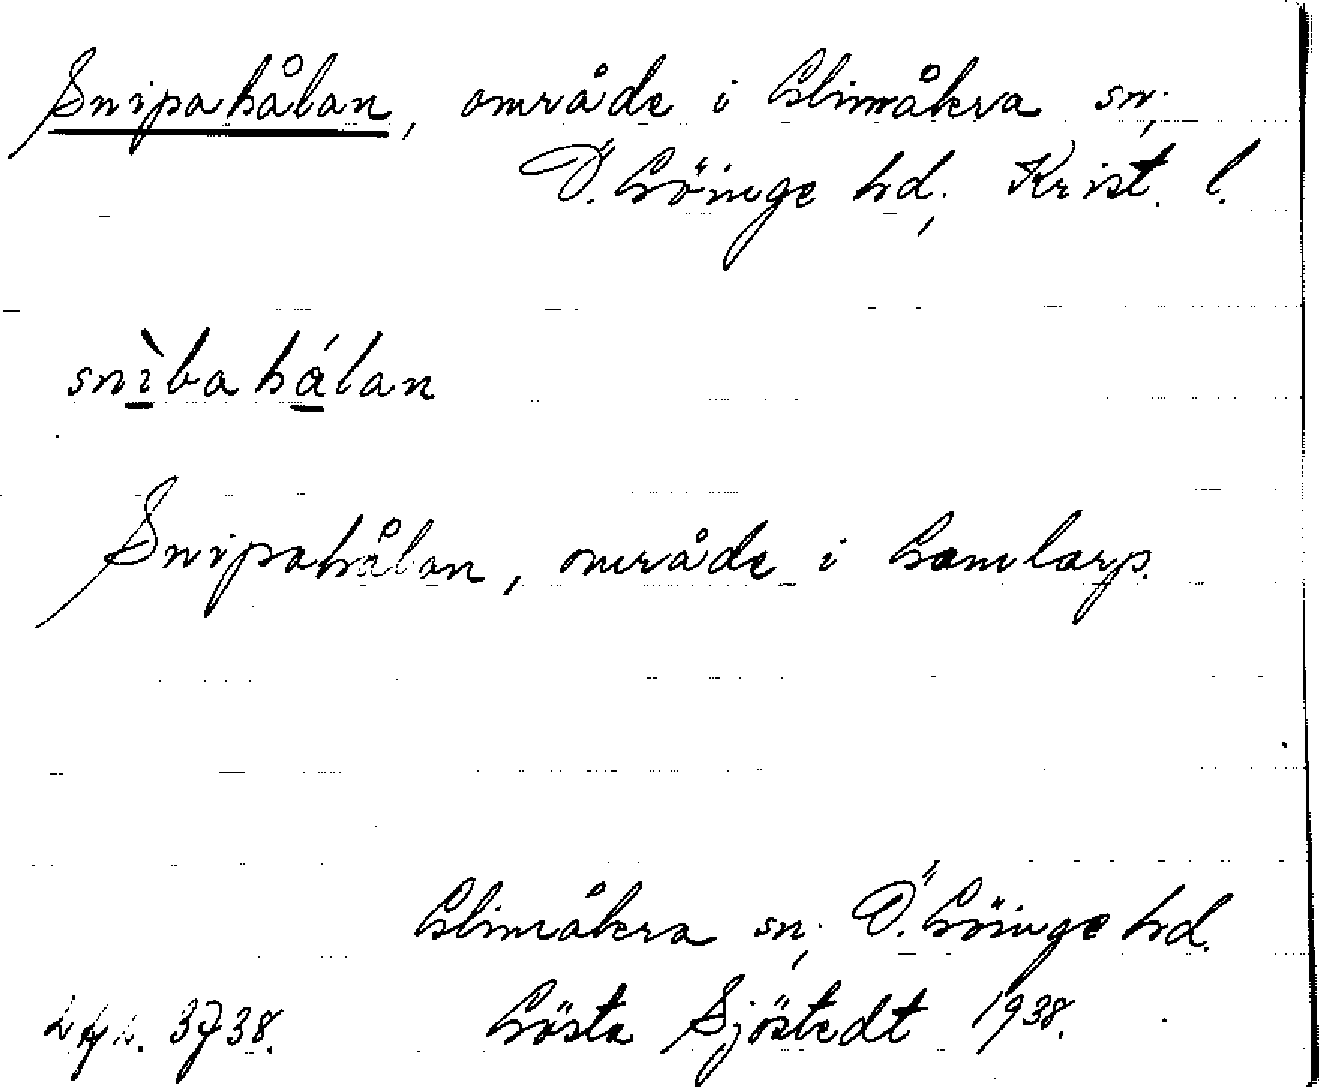 Snipahålan, område i Glimåkra sn,
Ö. Göinge hd, Krist. l.
snìbahálan
Snipahålan, område i Gamlarp.
Glimåkra sn, Ö. Göinge hd.
3738. Gösta Sjöstedt 1938.